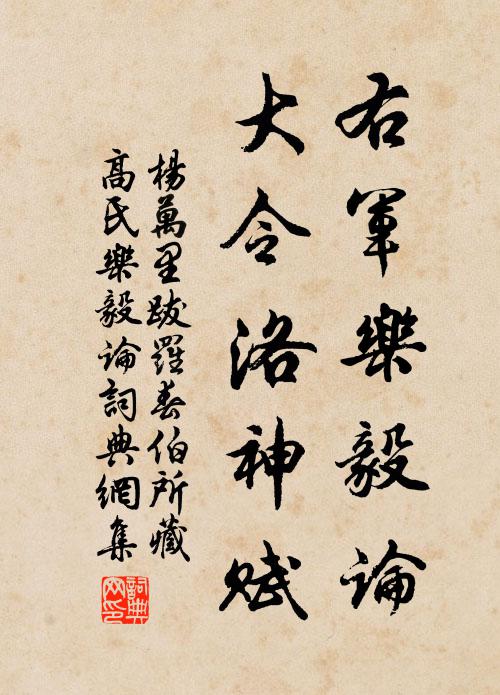 右軍樂毅論
大令洛神賦
楊萬里跋羅春伯所藏
高氏樂毅論詞典網集
詞典網印